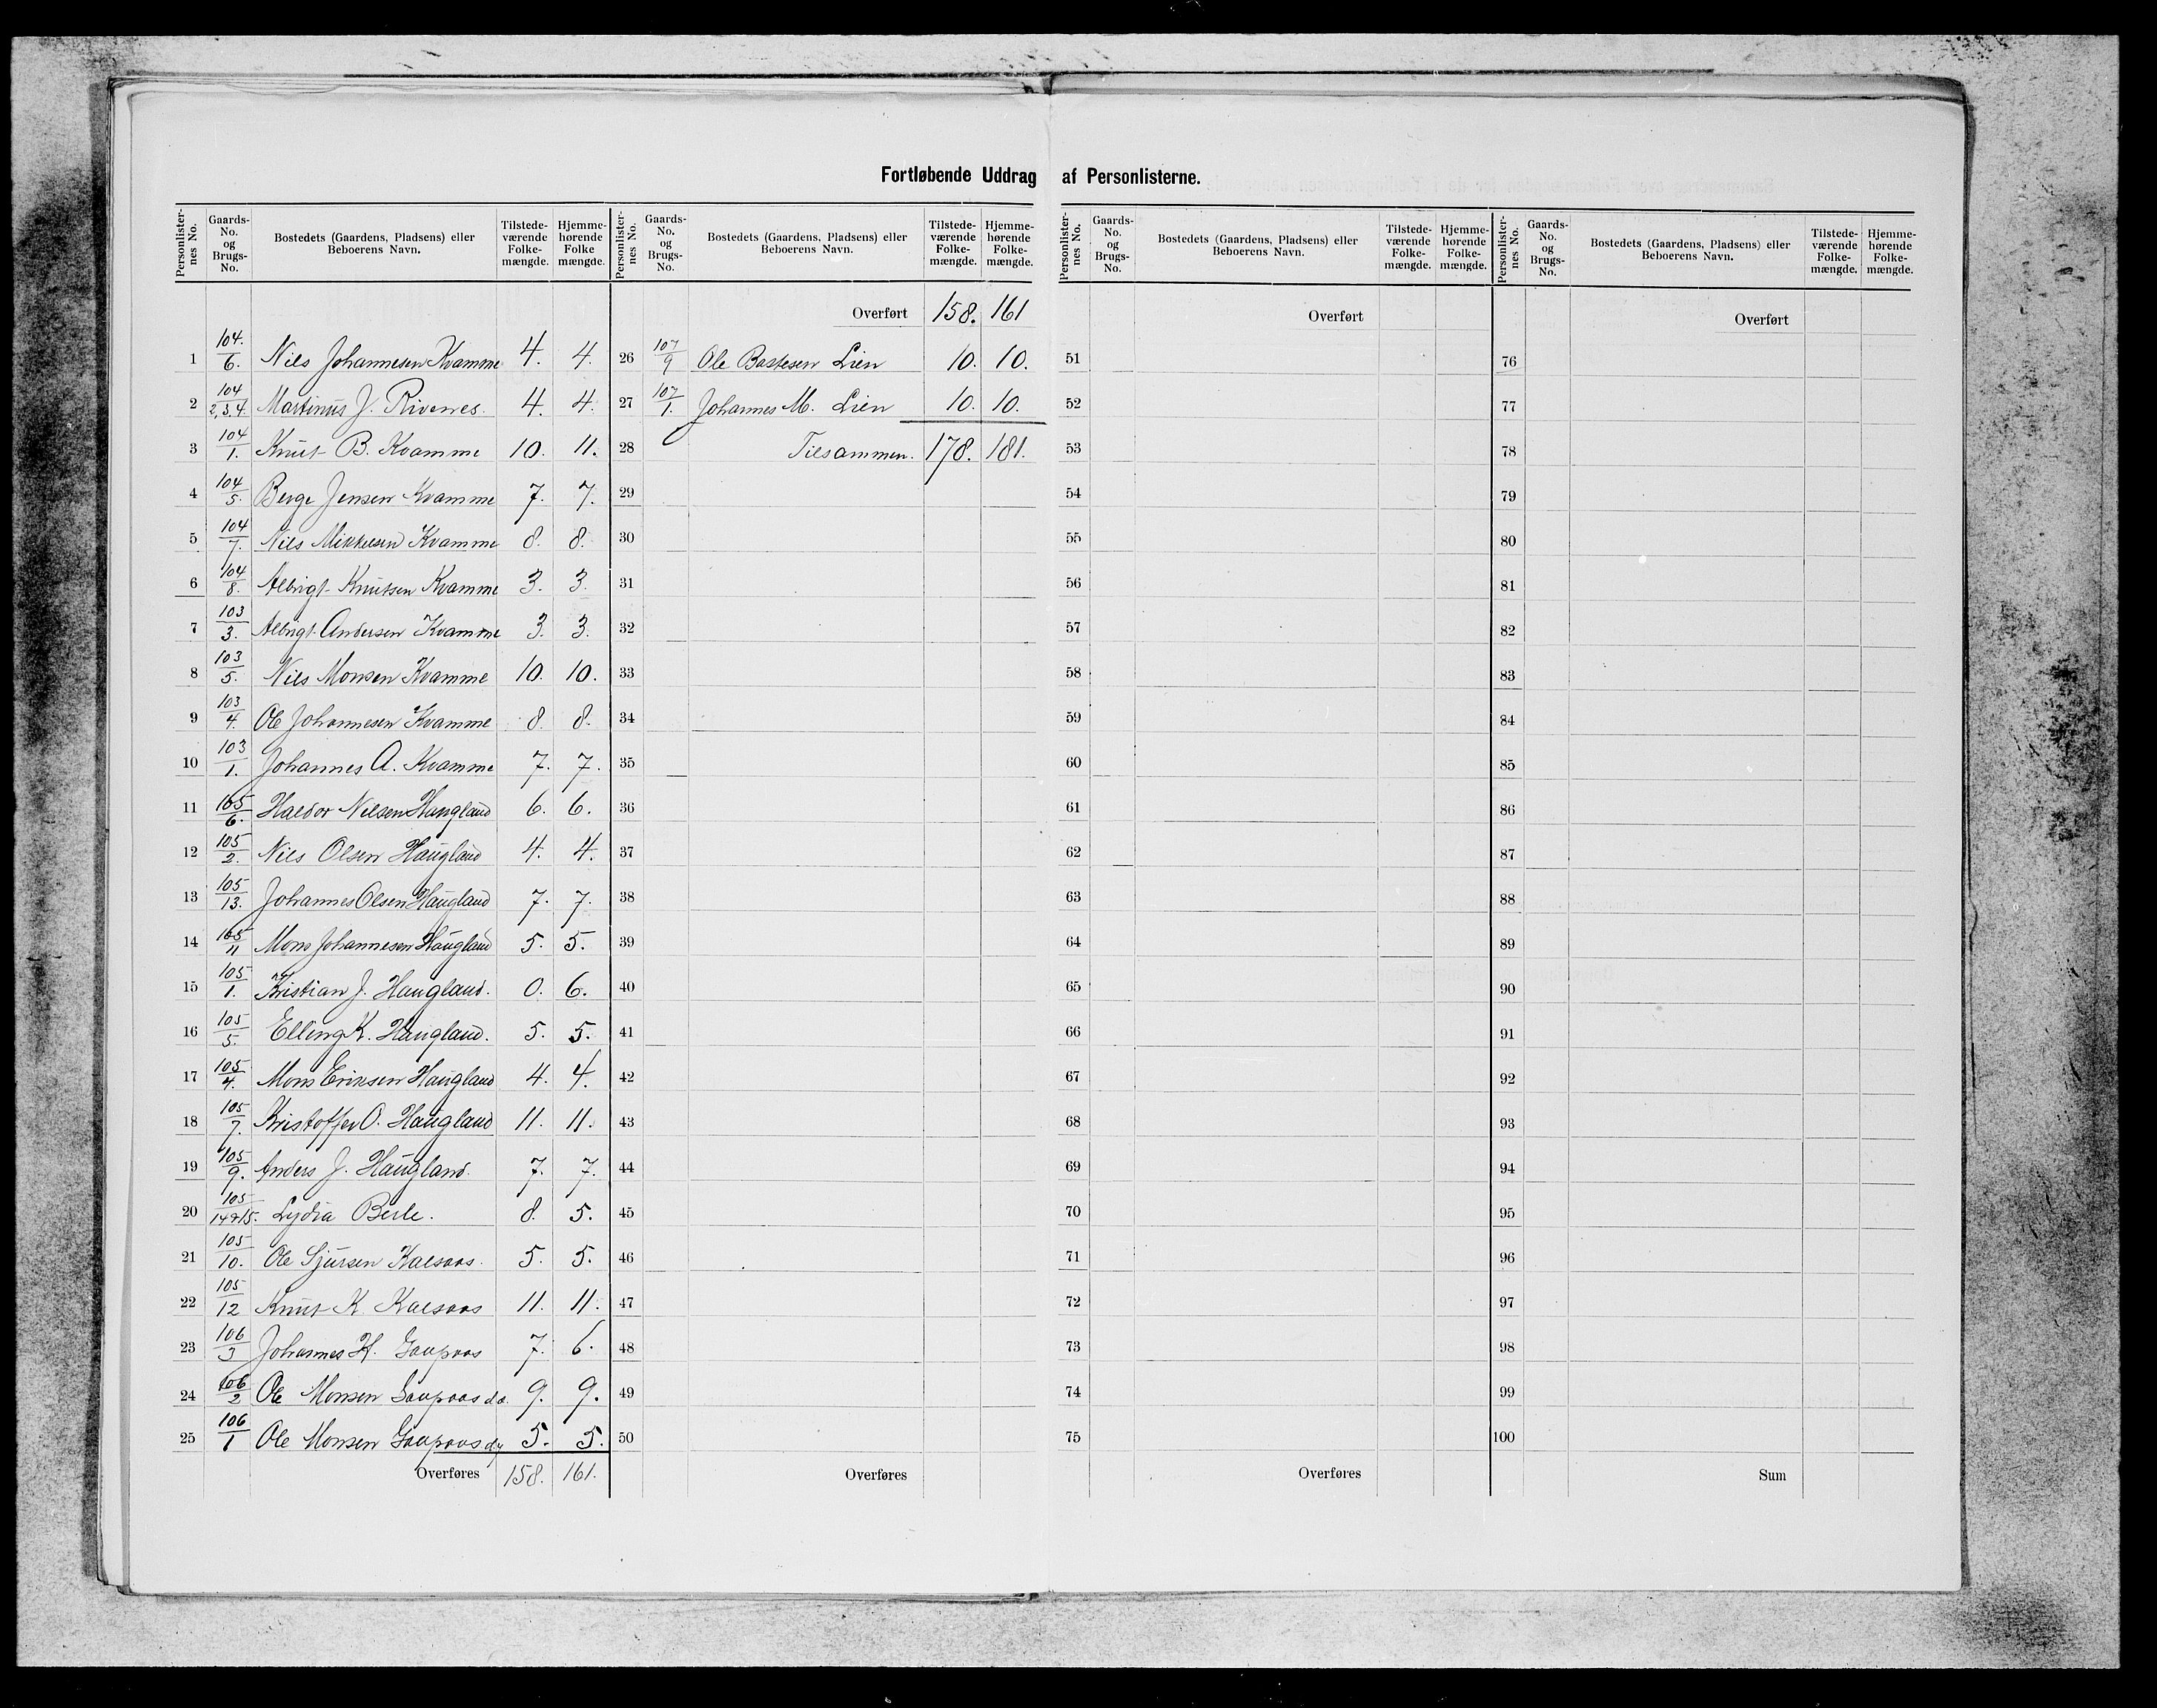 Fortløbende Uddrag af Personlisterne.
Personlisternes No. | Gaards-No. og Brugs-No. | Bostedets (Gaardens, Pladsens) eller Beboerens Navn. | Tilstedeværende Folkemængde. | Hjemmehørende Folkemængde.
1 104./6. Nils Johannesen Kvamme 4. 4.
2 104/2,3,4. Martinus J. Rivenes. 4. 4.
3 104/1. Knut B. Kvamme 10. 11.
4 104/5. Berge Jensen Kvamme 7. 7.
5 104/7. Nils Mikkelsen Kvamme 8. 8.
6 104/8. Albrigt Knutsen Kvamme 3. 3.
7 103/3. Albrigt Andersen Kvamme 3. 3.
8 103/5. Nils Monsen Kvamme 10. 10.
9 103/4. Ole Johannesen Kvamme 8. 8.
10 103/1. Johannes A. Kvamme 7. 7.
11 105/6. Haldor Nilsen Haugland 6. 6.
12 105/2. Nils Olsen Haugland 4. 4.
13 105/13. Johannes Olsen Haugland 7. 7.
14 105/11 Mons Johannesen Haugland 5. 5.
15 105/1. Kristian J. Haugland. 0. 6.
16 105/5. Elling K. Haugland. 5. 5.
17 105/4. Mons Eriksen Haugland 4. 4.
18 105/7. Kristoffer O. Haugland 11. 11.
19 105/9. Anders J. Haugland. 7. 7.
20 105/14&15. Lydia Berle. 8. 5.
21 105/10. Ole Sjursen Kalsaas. 5. 5.
22 105/12 Knut K. Kalsaas 11. 11.
23 106/3 Johannes H. Gaupaas 7. 6.
24 106/2 Ole Monsen Gaupaas d.æ. 9. 9.
25 106/1 Ole Monsen Gaupaas d.y 5. 5.
Overføres 158. 161.
Personlisternes No. | Gaards-No. og Brugs-No. | Bostedets (Gaardens, Pladsens) eller Beboerens Navn. | Tilstedeværende Folkemængde. | Hjemmehørende Folkemængde.
Overført 158. 161
26 107/9 Ole Bastesen Lien 10. 10.
27 107/1. Johannes M. Lien 10. 10.
28 Tilsammen. 178. 181.
29
30
31
32
33
34
35
36
37
38
39
40
41
42
43
44
45
46
47
48
49
50
Overføres
Personlisternes No. | Gaards-No. og Brugs-No. | Bostedets (Gaardens, Pladsens) eller Beboerens Navn. | Tilstedeværende Folkemængde. | Hjemmehørende Folkemængde.
Overført
51
52
53
54
55
56
57
58
59
60
61
62
63
64
65
66
67
68
69
70
71
72
73
74
75
Overføres
Personlisternes No. | Gaards-No. og Brugs-No. | Bostedets (Gaardens, Pladsens) eller Beboerens Navn. | Tilstedeværende Folkemængde. | Hjemmehørende Folkemængde.
Overført
76
77
78
79
80
81
82
83
84
85
86
87
88
89
90
91
92
93
94
95
96
97
98
99
100
Sum